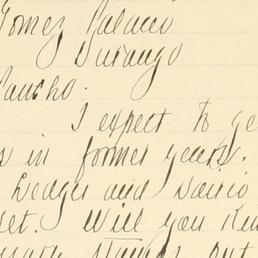 Gomez Palacio
Durango
Pancho.
I expect to ge
s in former years.
and
et. Will you
stamps out